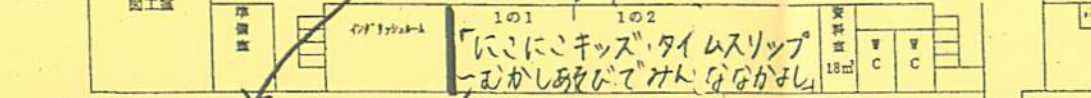 図工室
準備室
イングリッシュルーム
1の1 1の2
「にこにこキッズ・タイムスリップ
〜むかしあそびでみんななかよし」
資料室
18㎡
WC
WC